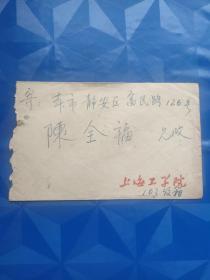 寄 本市静安区富民路126号
陳全福 兄收
上海工学院
163 致相